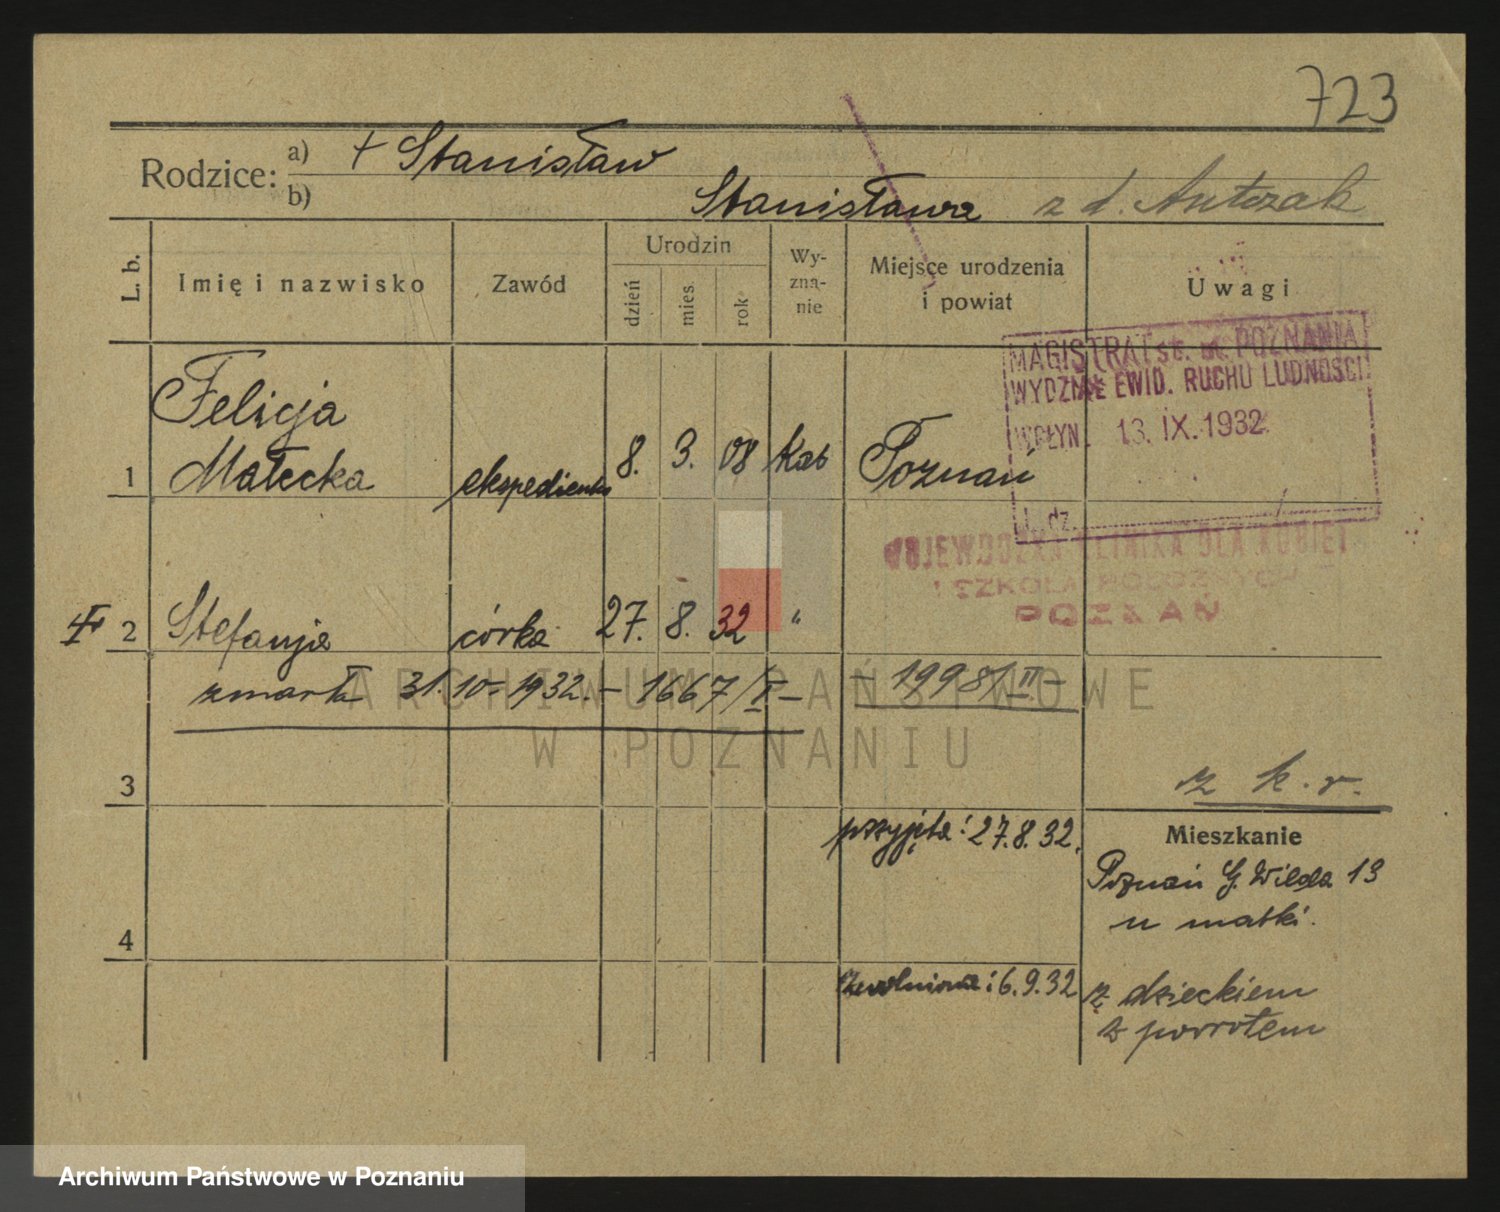 723
Rodzice: a) + Stanisław
b) Stanisława z d. Antczak
L. b.
Imię i nazwisko
Zawód
Urodzin
dzień
mies.
rok
Wy-
zna-
nie
Miejsce urodzenia
i powiat
Uwagi
MAGISTRAT st. m. POZNANIA
WYDZIAŁ EWID. RUCHU LUDNOŚCI
WPŁYN. 13. IX. 1932
L. dz.
1 Felicja
Małecka ekspedientka 8. 3. 08 kat Poznań
WOJEWÓDZKA KLINIKA DLA KOBIET
I SZKOŁA POŁOŻNYCH
POZNAŃ
2 Stefanja córka 27. 8. 32 "
zmarła 31. 10. 1932. – 1667/I – – 19981/II –
ARCHIWUM PAŃSTWOWE
W POZNANIU
3
z k. r.
przyjęta: 27.8.32.
Mieszkanie
Poznań G. Wilda 13
u matki.
4
zwolniona: 6.9.32
z dzieckiem
z powrotem
Archiwum Państwowe w Poznaniu